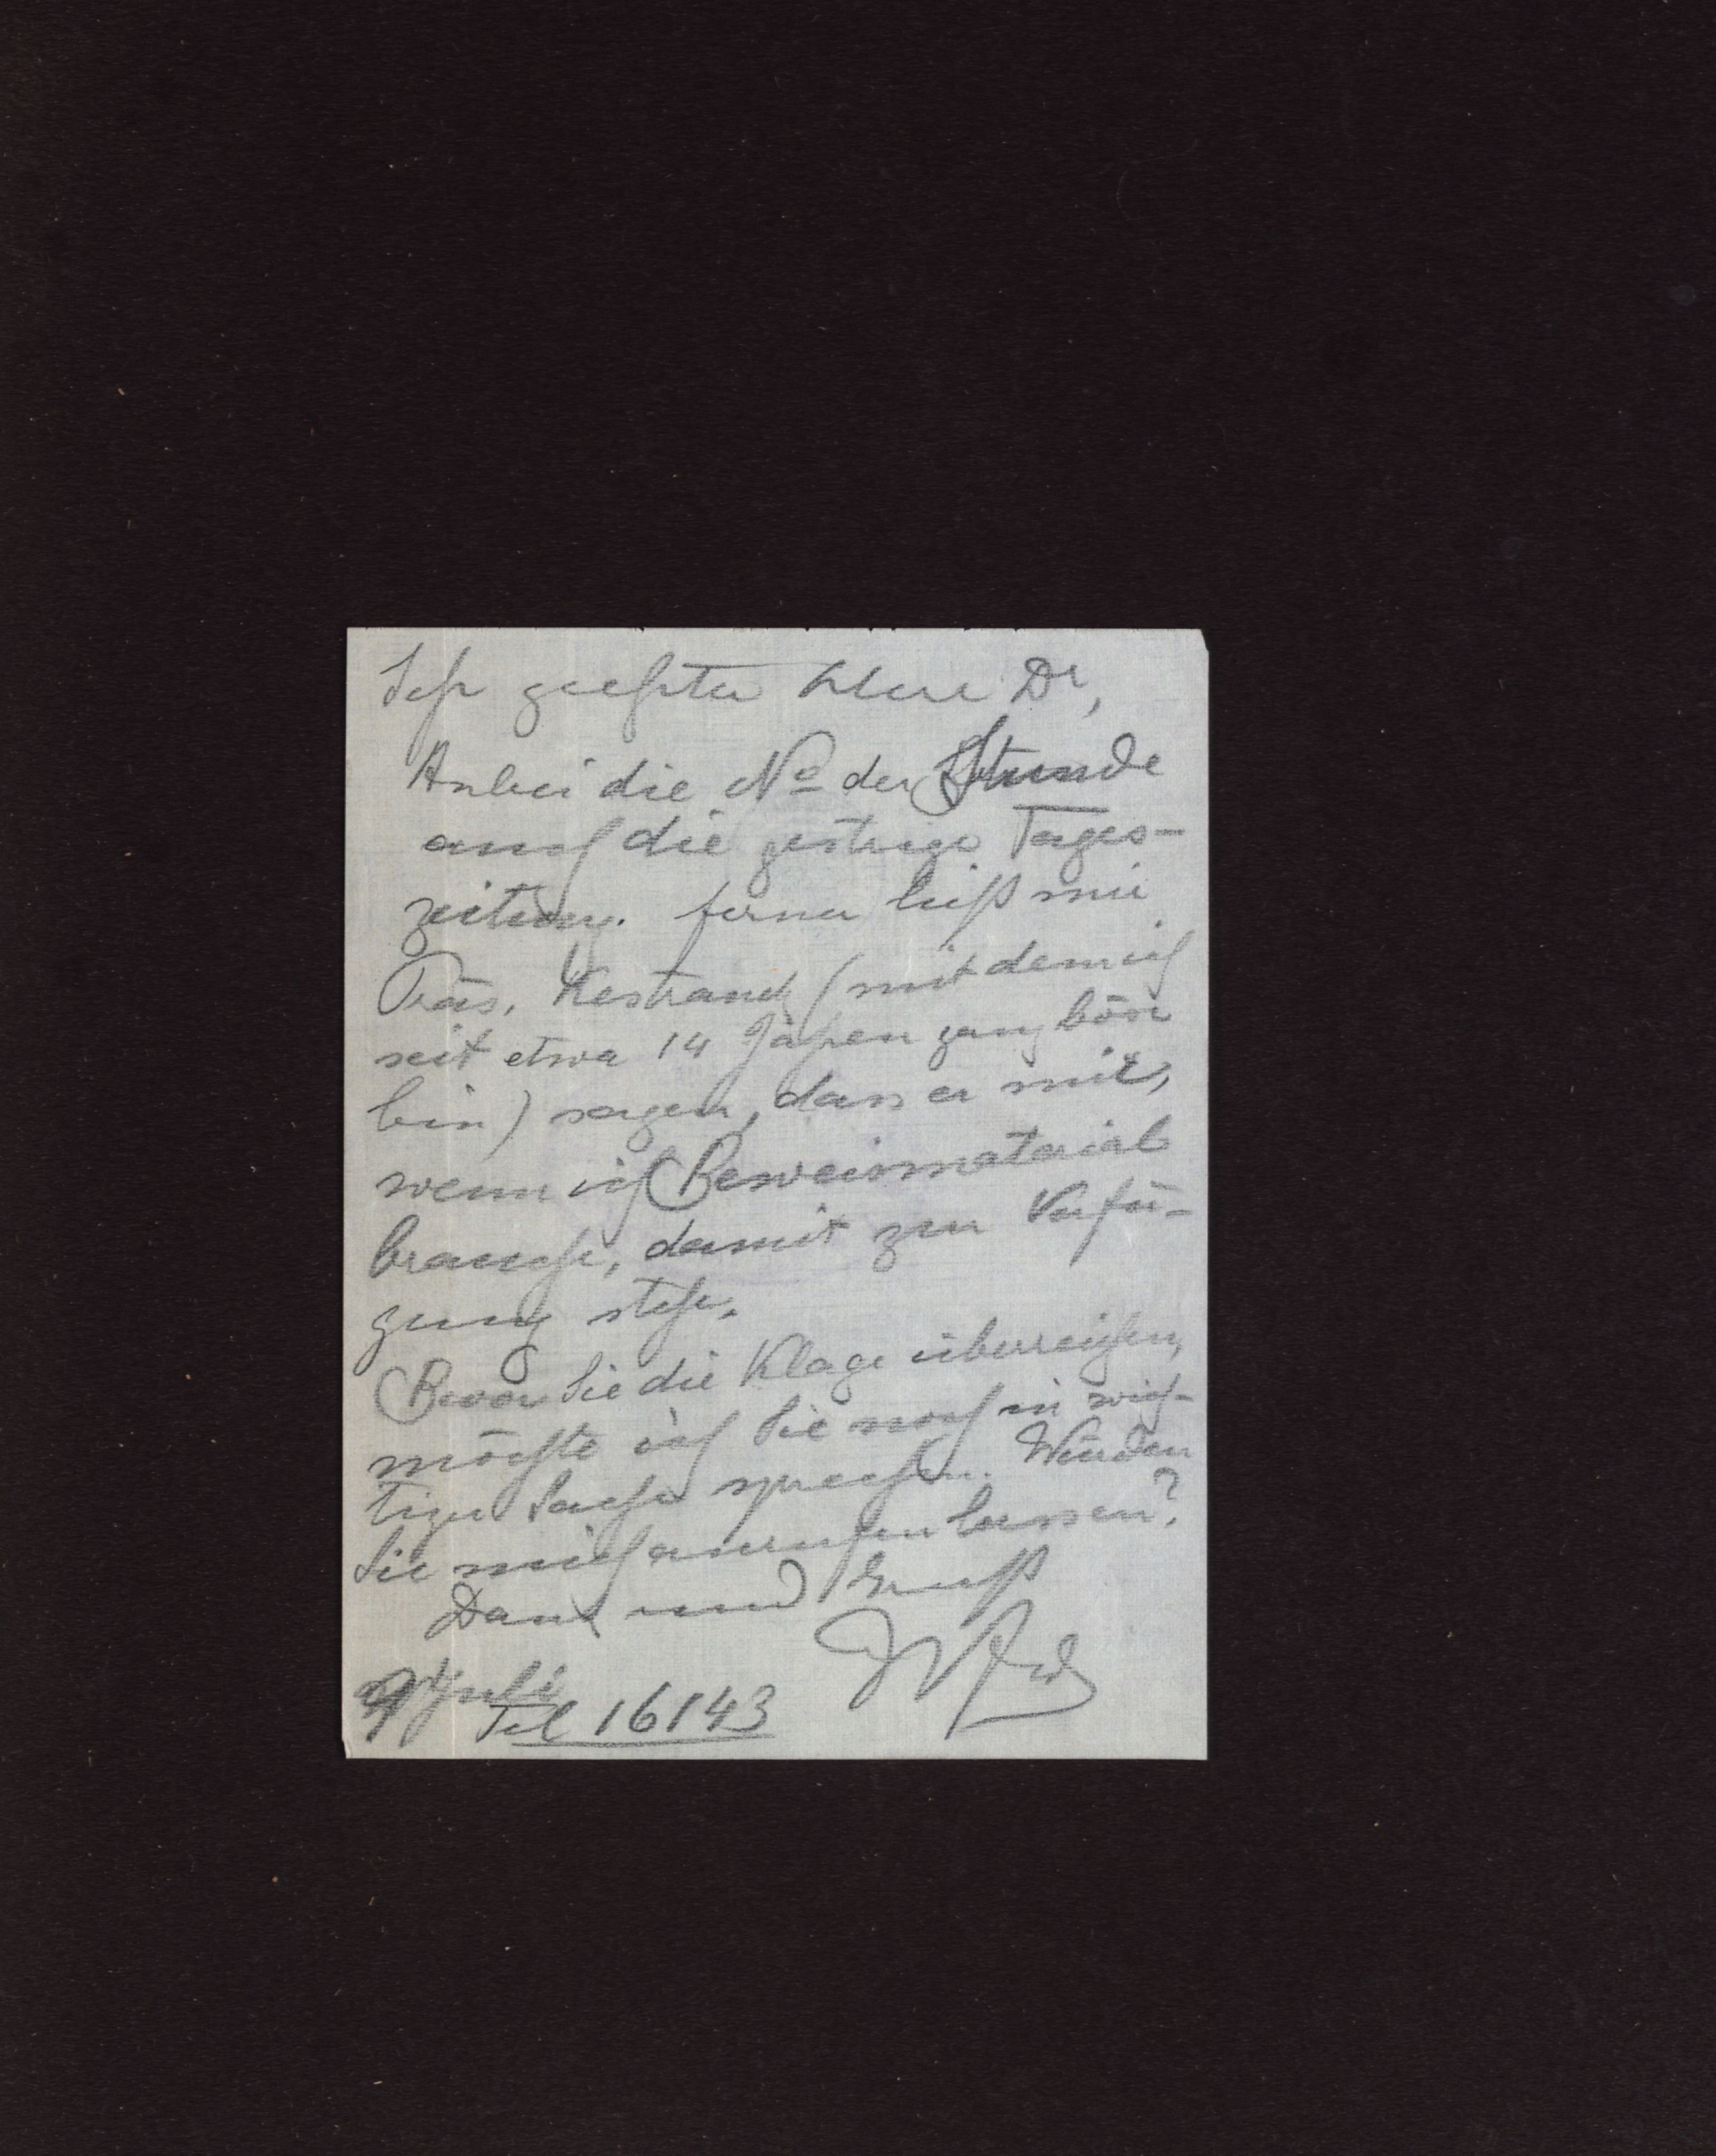 Sehr geehrter Herr Dr,
Anbei die No der Stunde
auch die gestrige Tages-
zeitung. Ferner ließ mir
Präs. Kestranek (mit dem ich
seit etwa 14 Jahren ganz böse
bin) sagen, dass er mir,
wenn ich Beweismaterial
brauche, damit zur Verfü-
gung stehe.
Bevor Sie die Klage überreichen,
möchte ich Sie noch in wich-
tiger Sache sprechen. Würden
Sie mich anrufen lassen?
Dank und Gruß
9 Juli
Tel 16143